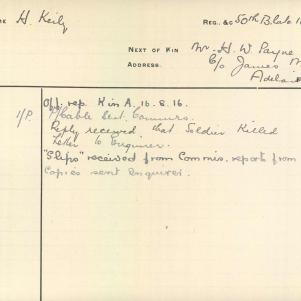 H. Keily
REG. &c 50th B. late 1
NEXT OF KIN
ADDRESS.
Mr. H. W. Payne
C/o James M
Adelai
1/P.
Off. rep. K in A. 16.8.16.
Cable sent Commrs.
Reply received that Soldier Killed
Letter to Enquirer.
"Slips" received from Commis. reports from
Copies sent enquirer.